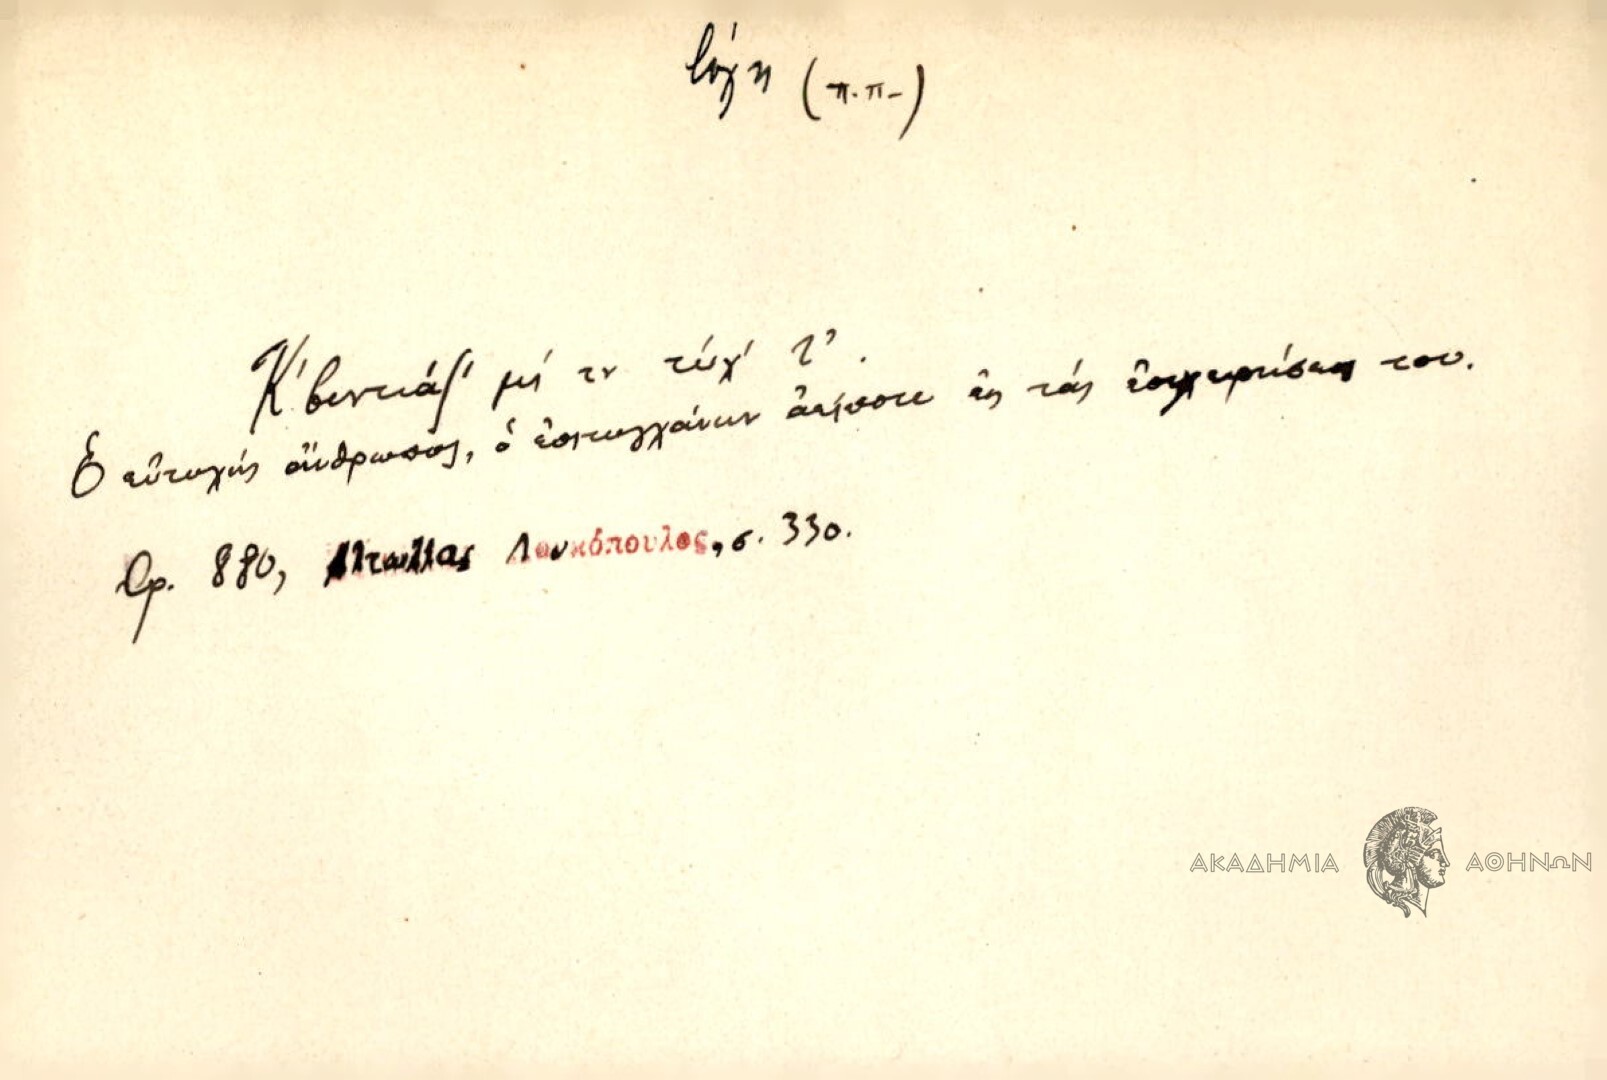 τύχη (π.π.)
Κ'βεντιάζ' μὶ τν τύχ' τ'.
Ὁ εὐτυχὴς ἄνθρωπος, ὁ ἐπιτυγχάνων ἀείποτε εἰς τὰς ἐπιχειρήσεις του.
ἀρ. 880, Αἰτωλίας Λουκόπουλος, σ. 330.
ΑΚΑΔΗΜΙΑ ΑΘΗΝΩΝ